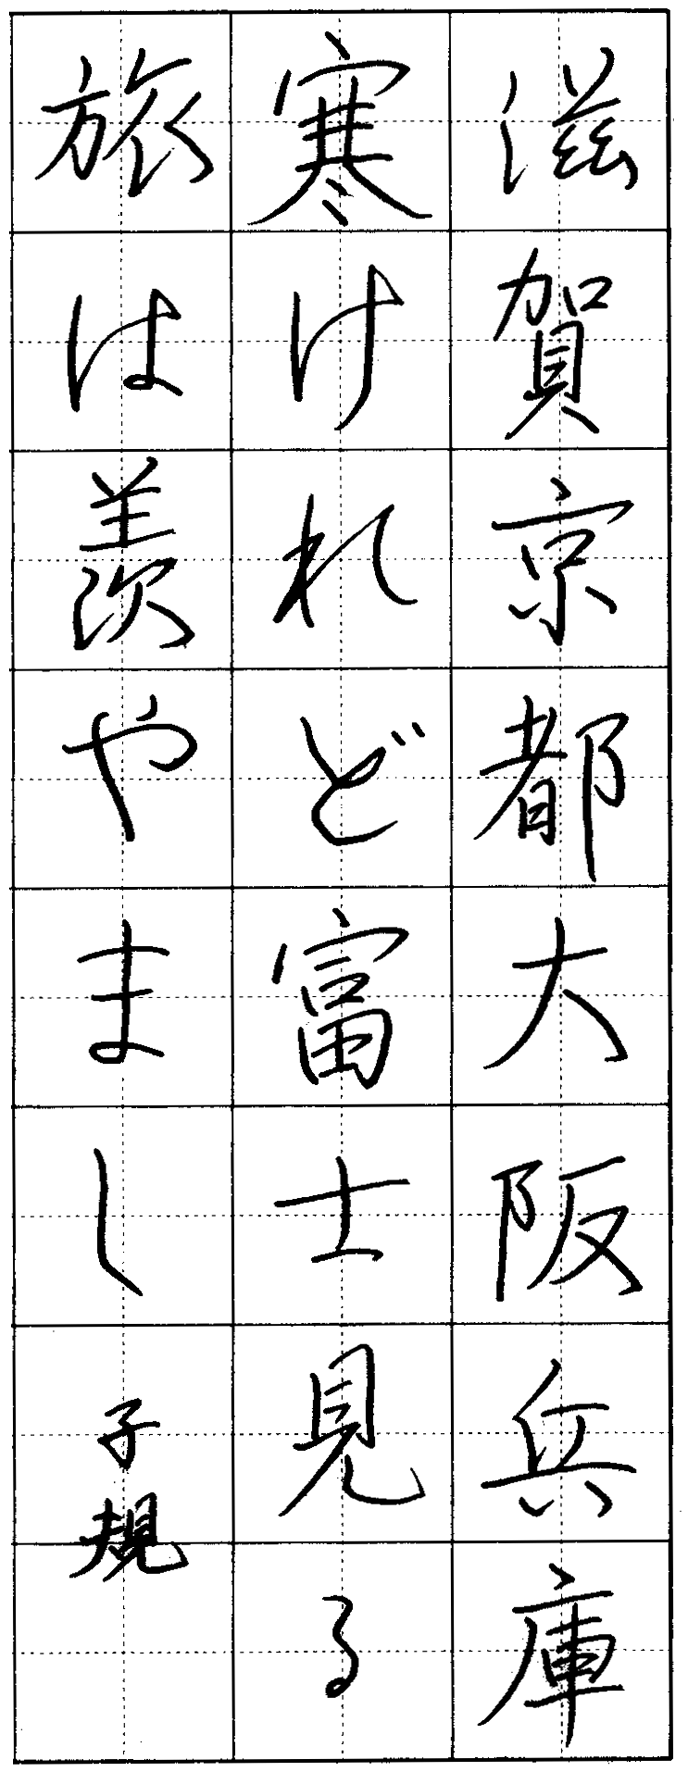 滋賀京都大阪兵庫
寒けれど富士見る
旅は羨やまし
子規